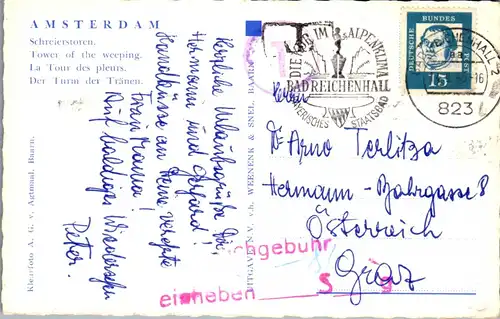 AMSTERDAM
Schreierstoren.
Tower of the weeping.
La Tour des pleurs.
Der Turm der Tränen.
Herzliche Urlaubsgrüße Dir,
Hermann und Gerhard!
Handküsse an Deine verehrte
Frau Mama!
Auf baldiges Wiedersehen
Peter.
Kleurfoto A. G. v. Agtmaal, Baarn.
UITGAVE N.V. v/h. WEENENK & SNEL, BAARN
T
DIE IM ALPENKLIMA
BAD REICHENHALL
BAYERISCHES STAATSBAD
DEUTSCHE BUNDESPOST
15
REICHENHALL 2
16
823
Herrn
Dr Arno Terlitza
Hermann-Bahrgasse 8
Österreich
Graz
chgebühr
einheben S g